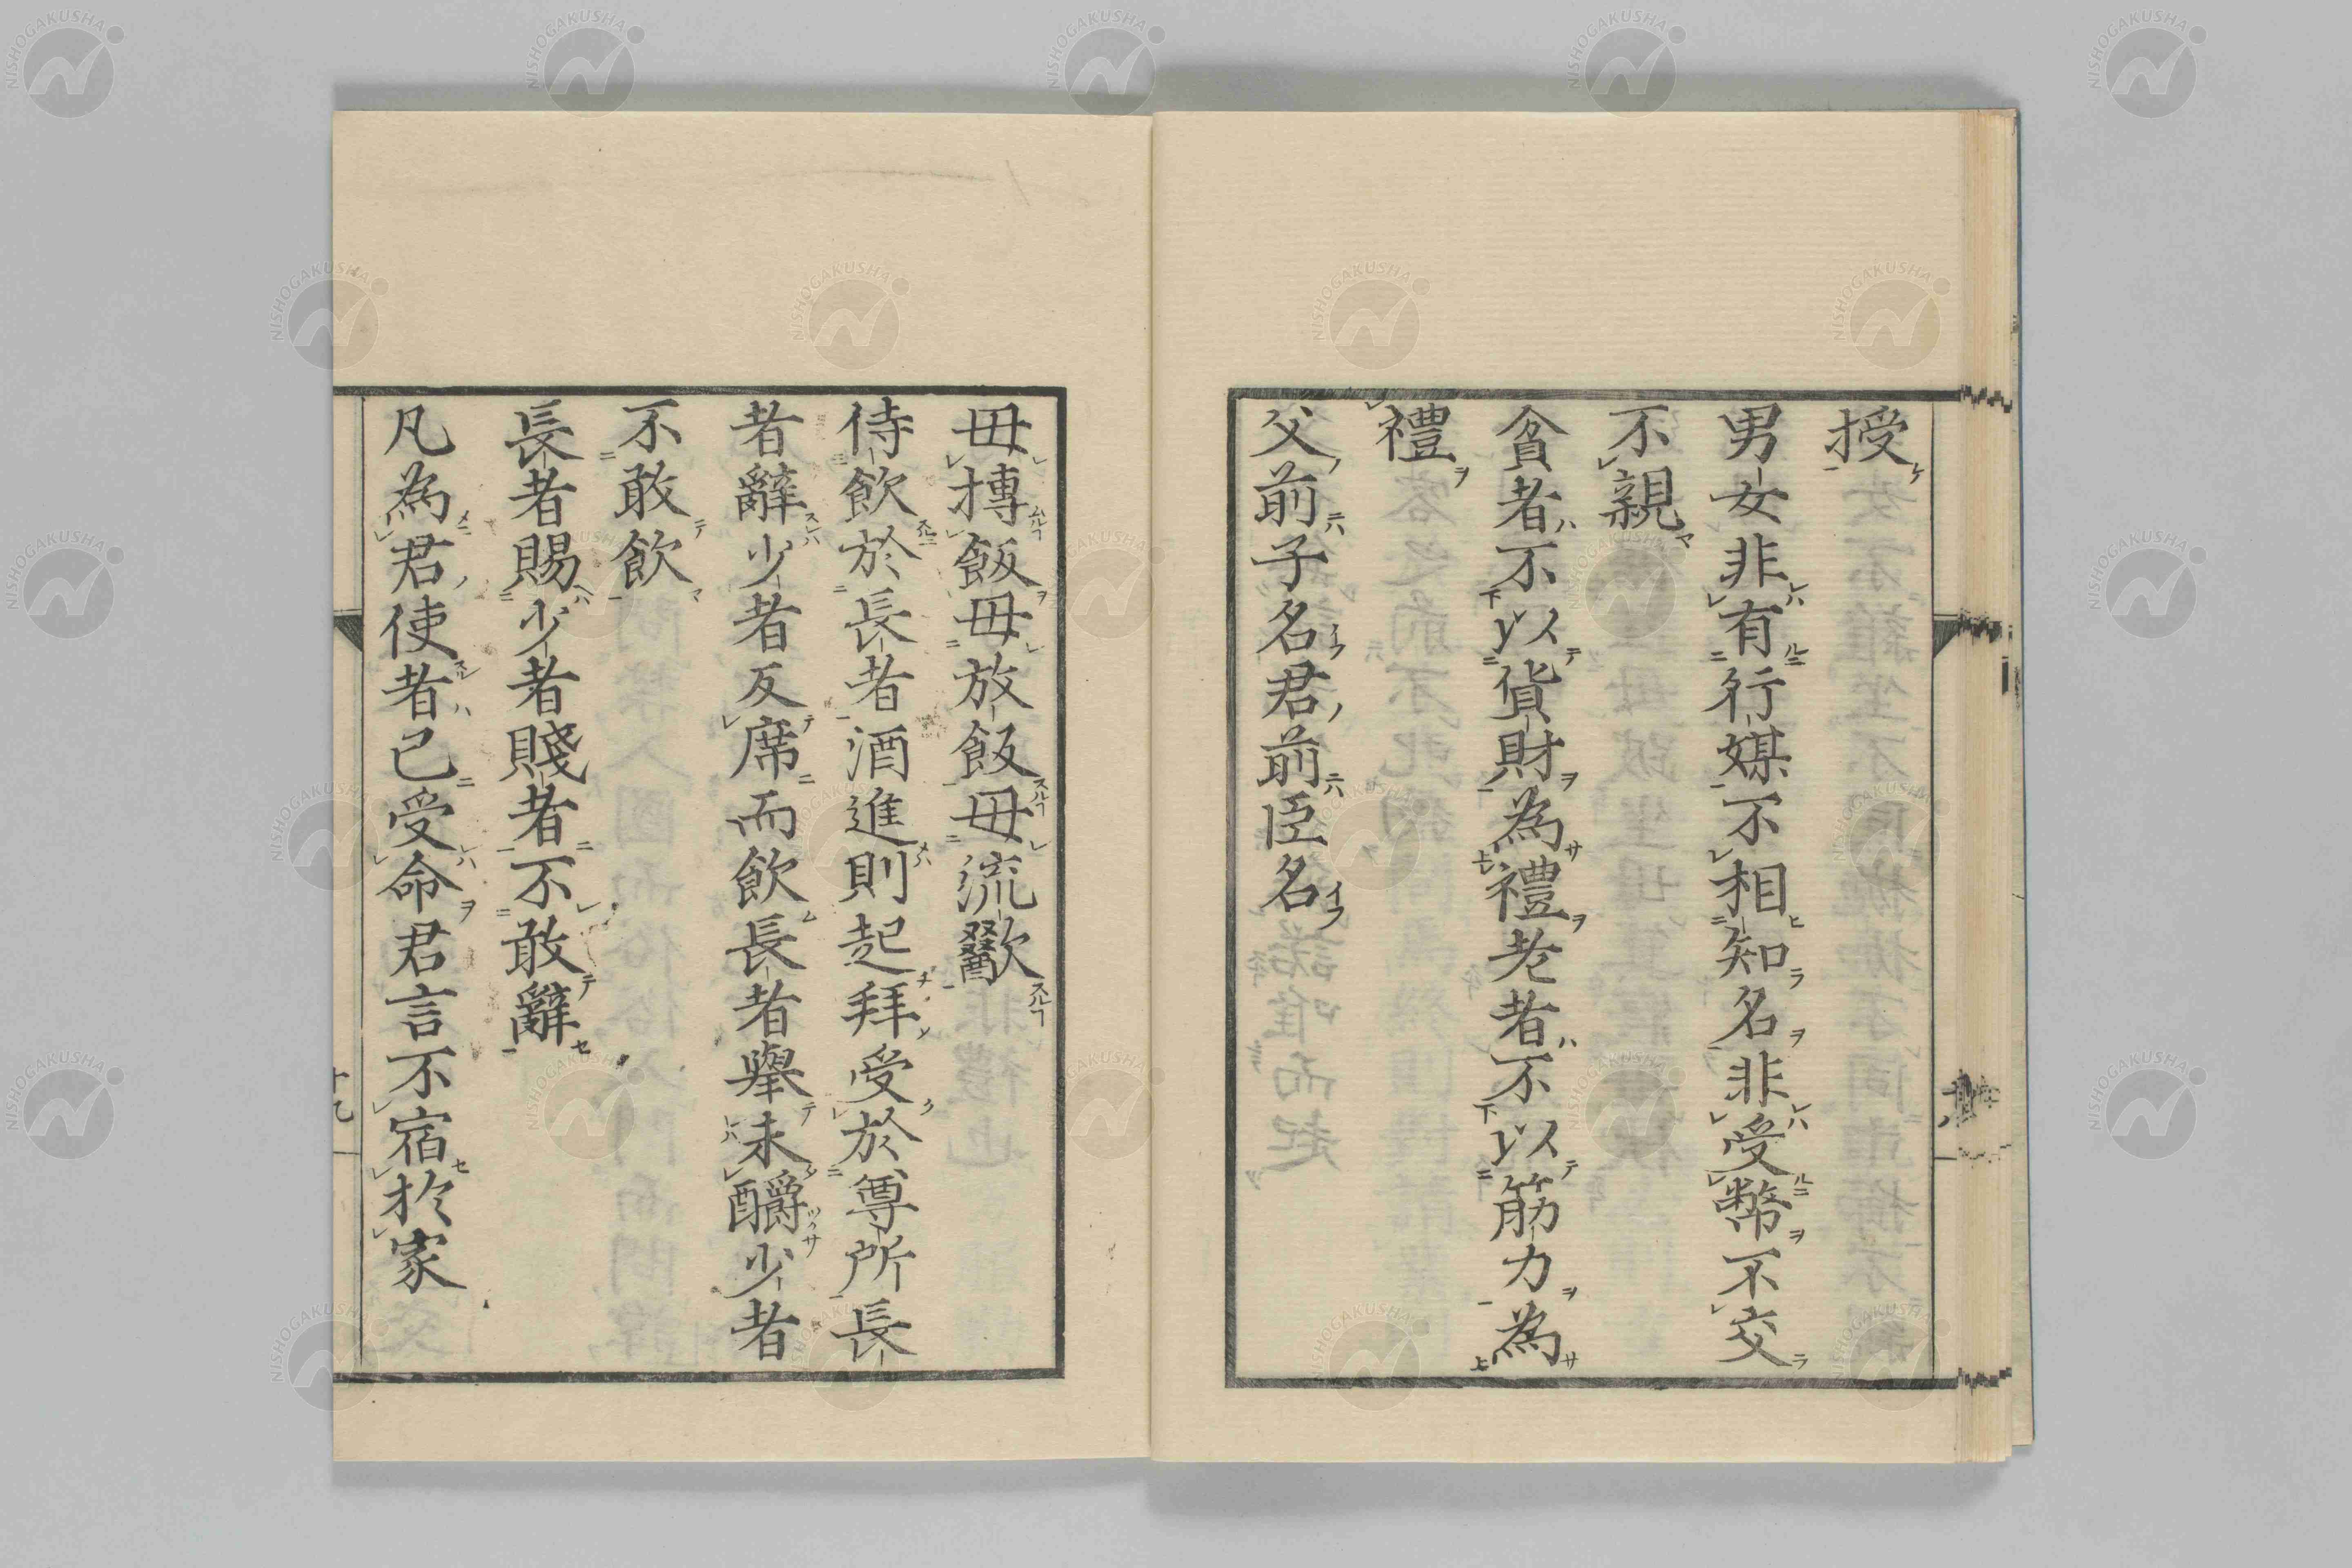 授
男女非有行媒不相知名非受幣不交
不親
貧者不以貨財為禮老者不以筋力為
禮
父前子名君前臣名
毋摶飯毋放飯毋流歠
侍飲於長者酒進則起拜受於尊所長
者辭少者反席而飲長者舉未釂少者
不敢飲
長者賜少者賤者不敢辭
凡為君使者已受命君言不宿於家
十九
NISHOGAKUSHA